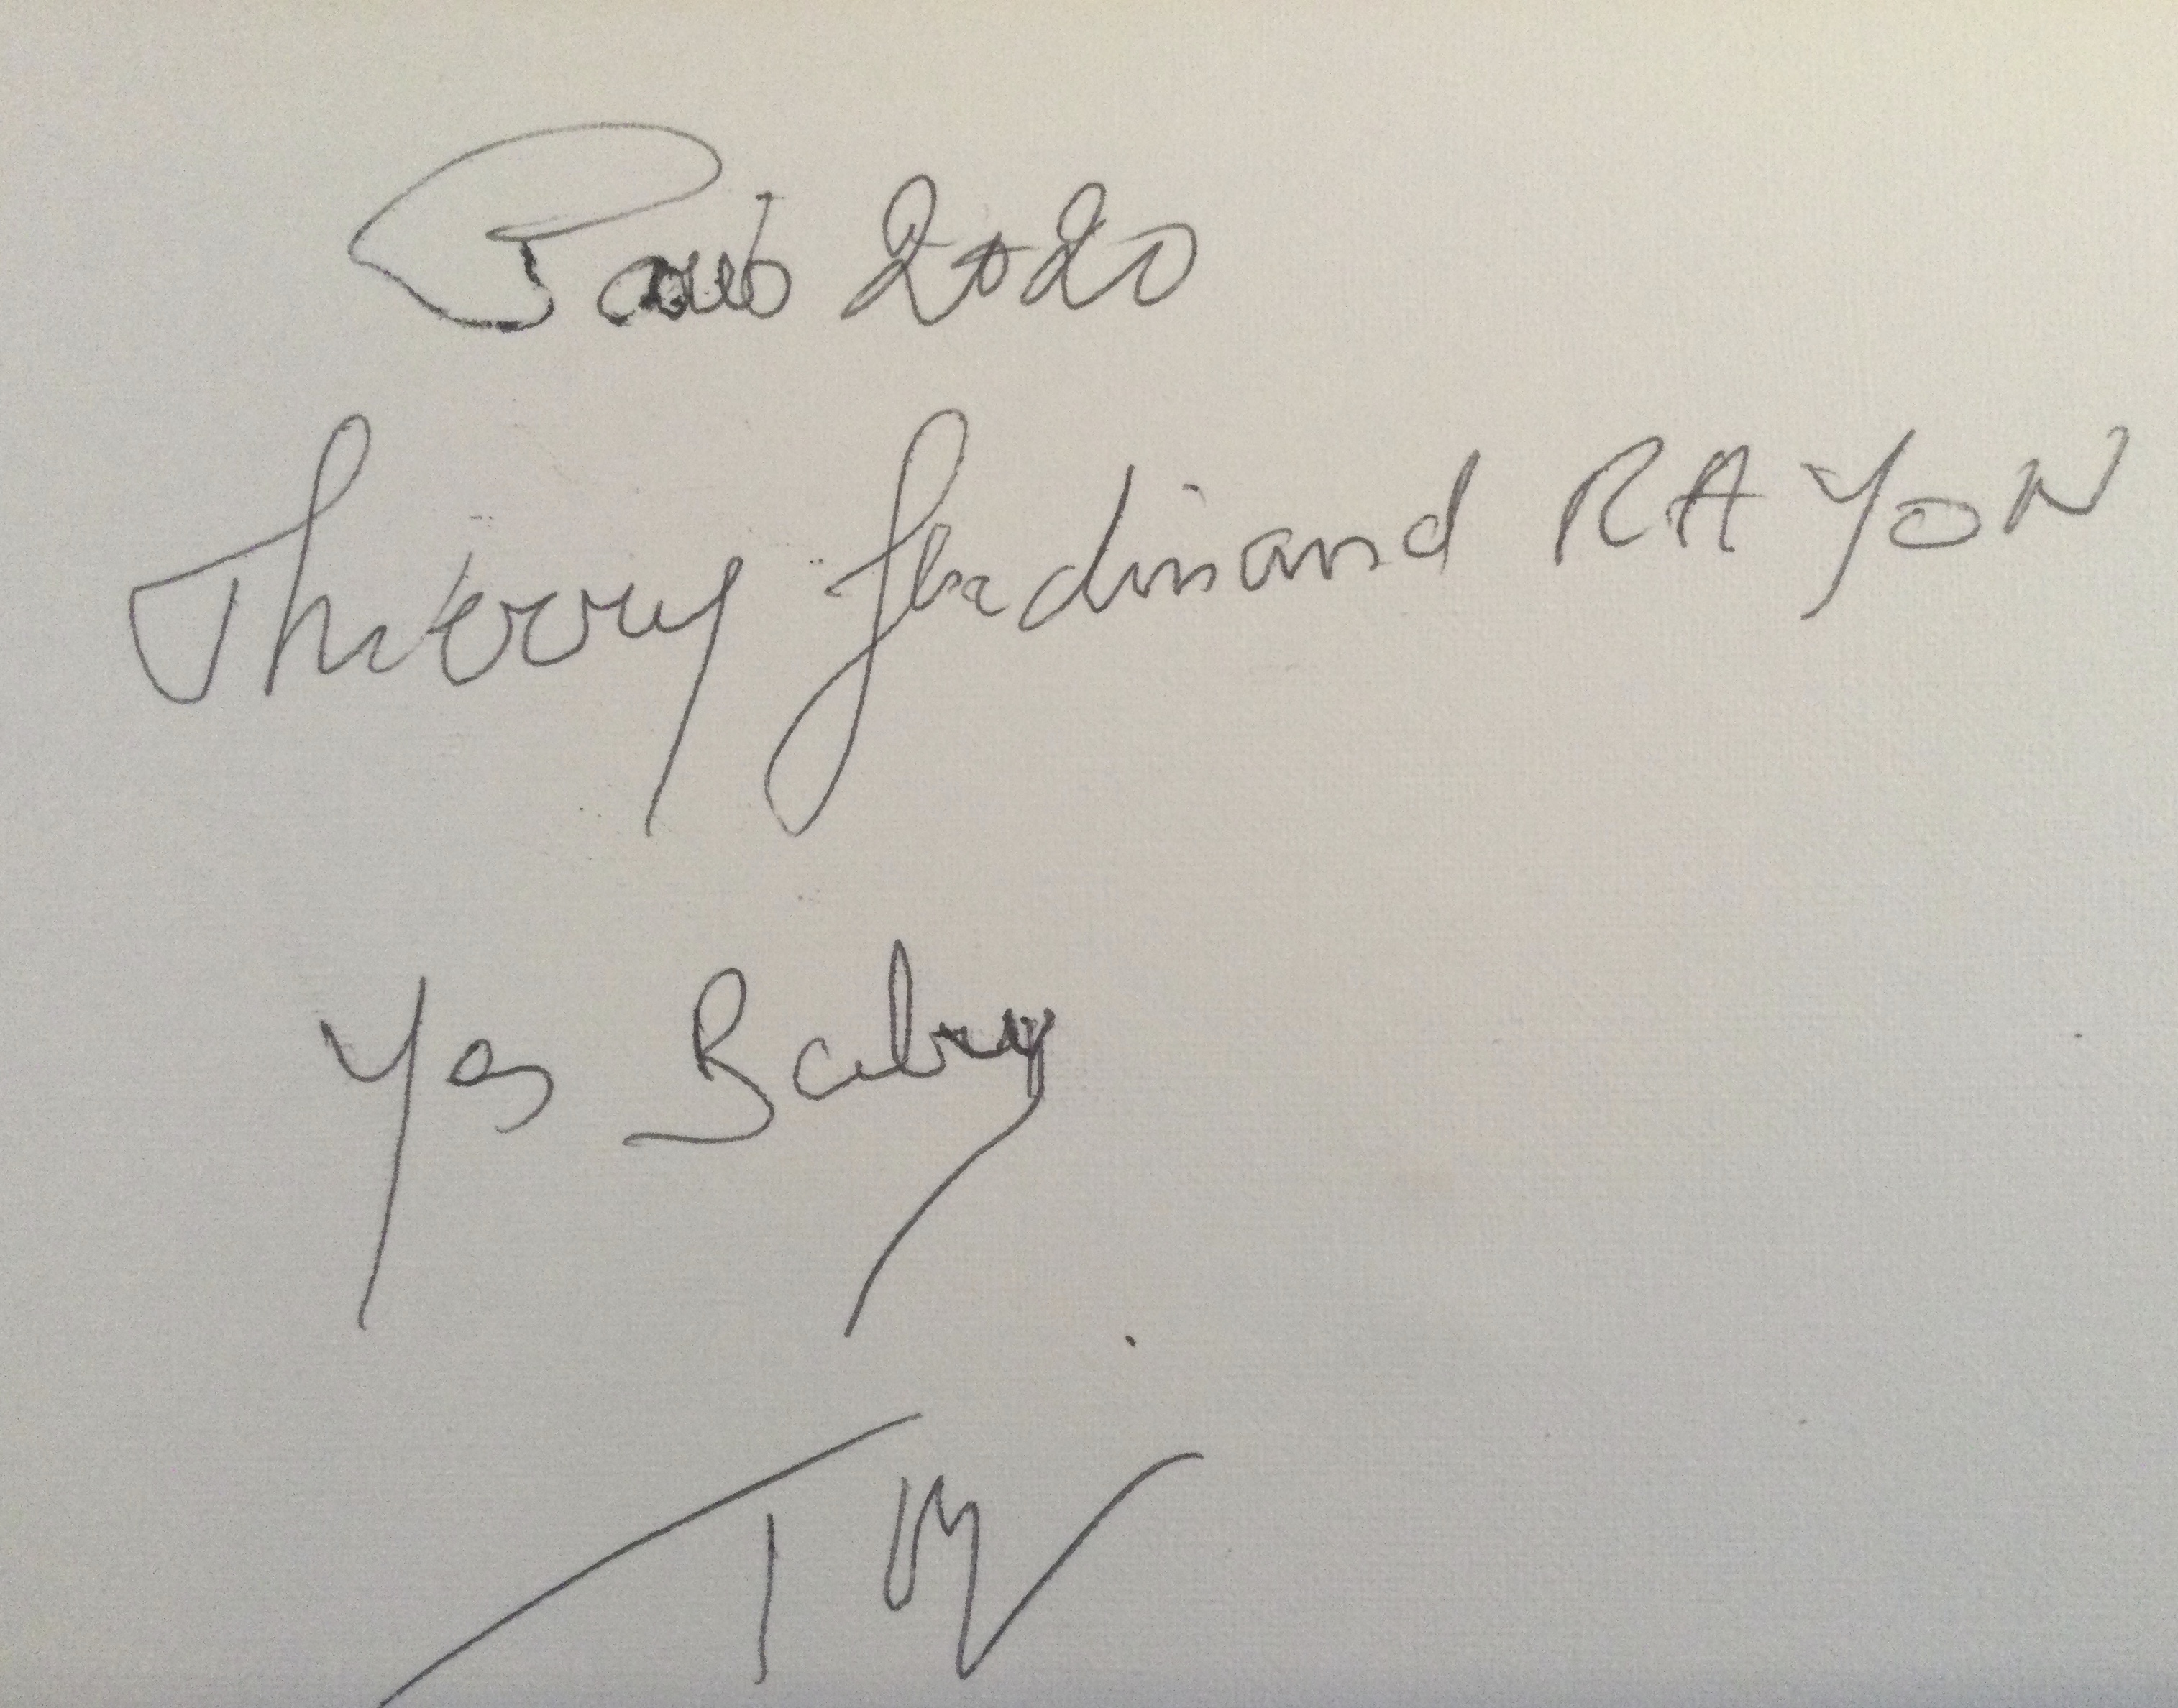 Paris 2020
Thierry ferdinand RAYON
Yes Baby